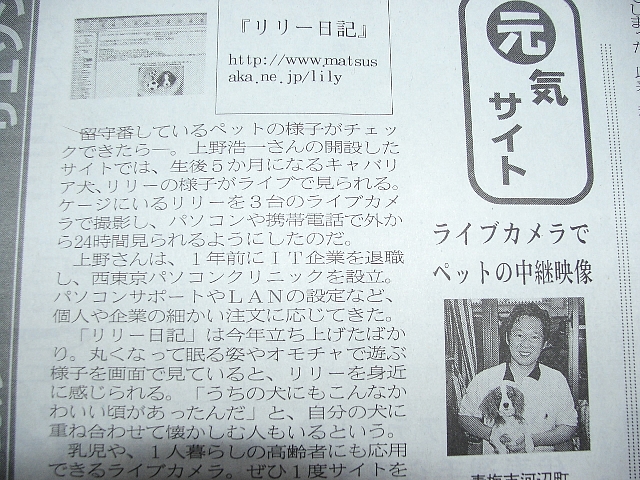 元気サイト
ライブカメラで
ペットの中継映像
『リリー日記』
http://www.matsus
aka.ne.jp/lily
留守番しているペットの様子がチェッ
クできたら―。上野浩一さんの開設した
サイトでは、生後5か月になるキャバリ
ア犬、リリーの様子がライブで見られる。
ケージにいるリリーを3台のライブカメ
ラで撮影し、パソコンや携帯電話で外か
ら24時間見られるようにしたのだ。
上野さんは、1年前にIT企業を退職
し、西東京パソコンクリニックを設立。
パソコンサポートやLANの設定など、
個人や企業の細かい注文に応じてきた。
「リリー日記」は今年立ち上げたばか
り。丸くなって眠る姿やオモチャで遊ぶ
様子を画面で見ていると、リリーを身近
に感じられる。「うちの犬にもこんなか
わいい頃があったんだ」と、自分の犬に
重ね合わせて懐かしむ人もいるという。
乳児や、1人暮らしの高齢者にも応用
できるライブカメラ。ぜひ1度サイトを
青梅市河辺町